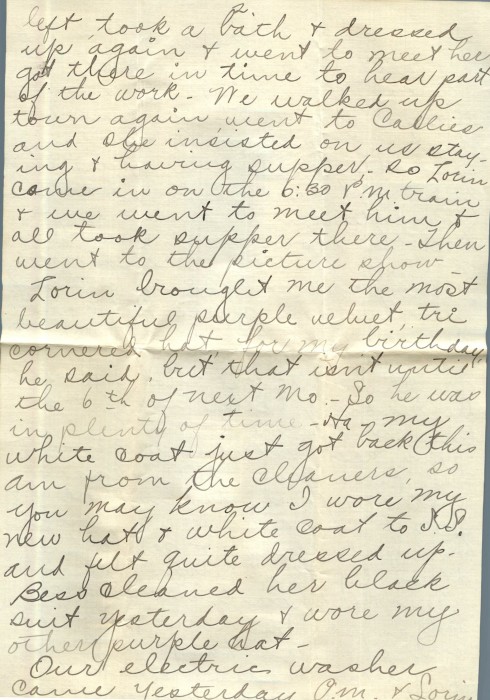 left took a bath & dressed
up again & went to meet her
got there in time to hear part
of the work. We walked up
town again went to Callies
and she insisted on us stay-
ing & having supper. so Lorin
came in on the 6:30 P.M. train
& we went to meet him &
all took supper there - Then
went to the picture show -
Lorin brought me the most
beautiful purple velvet tri
cornered hat for my birthday,
he said, but that isn't until
the 6th of next Mo. - So he was
in plenty of time - Ha - my
white coat just got back this
am from the cleaners, so
you may know I wore my
new hat & white coat to
and felt quite dressed up.
Bess cleaned her black
suit yesterday & wore my
other purple hat -
Our electric washer
came yesterday P.m. & Lorin